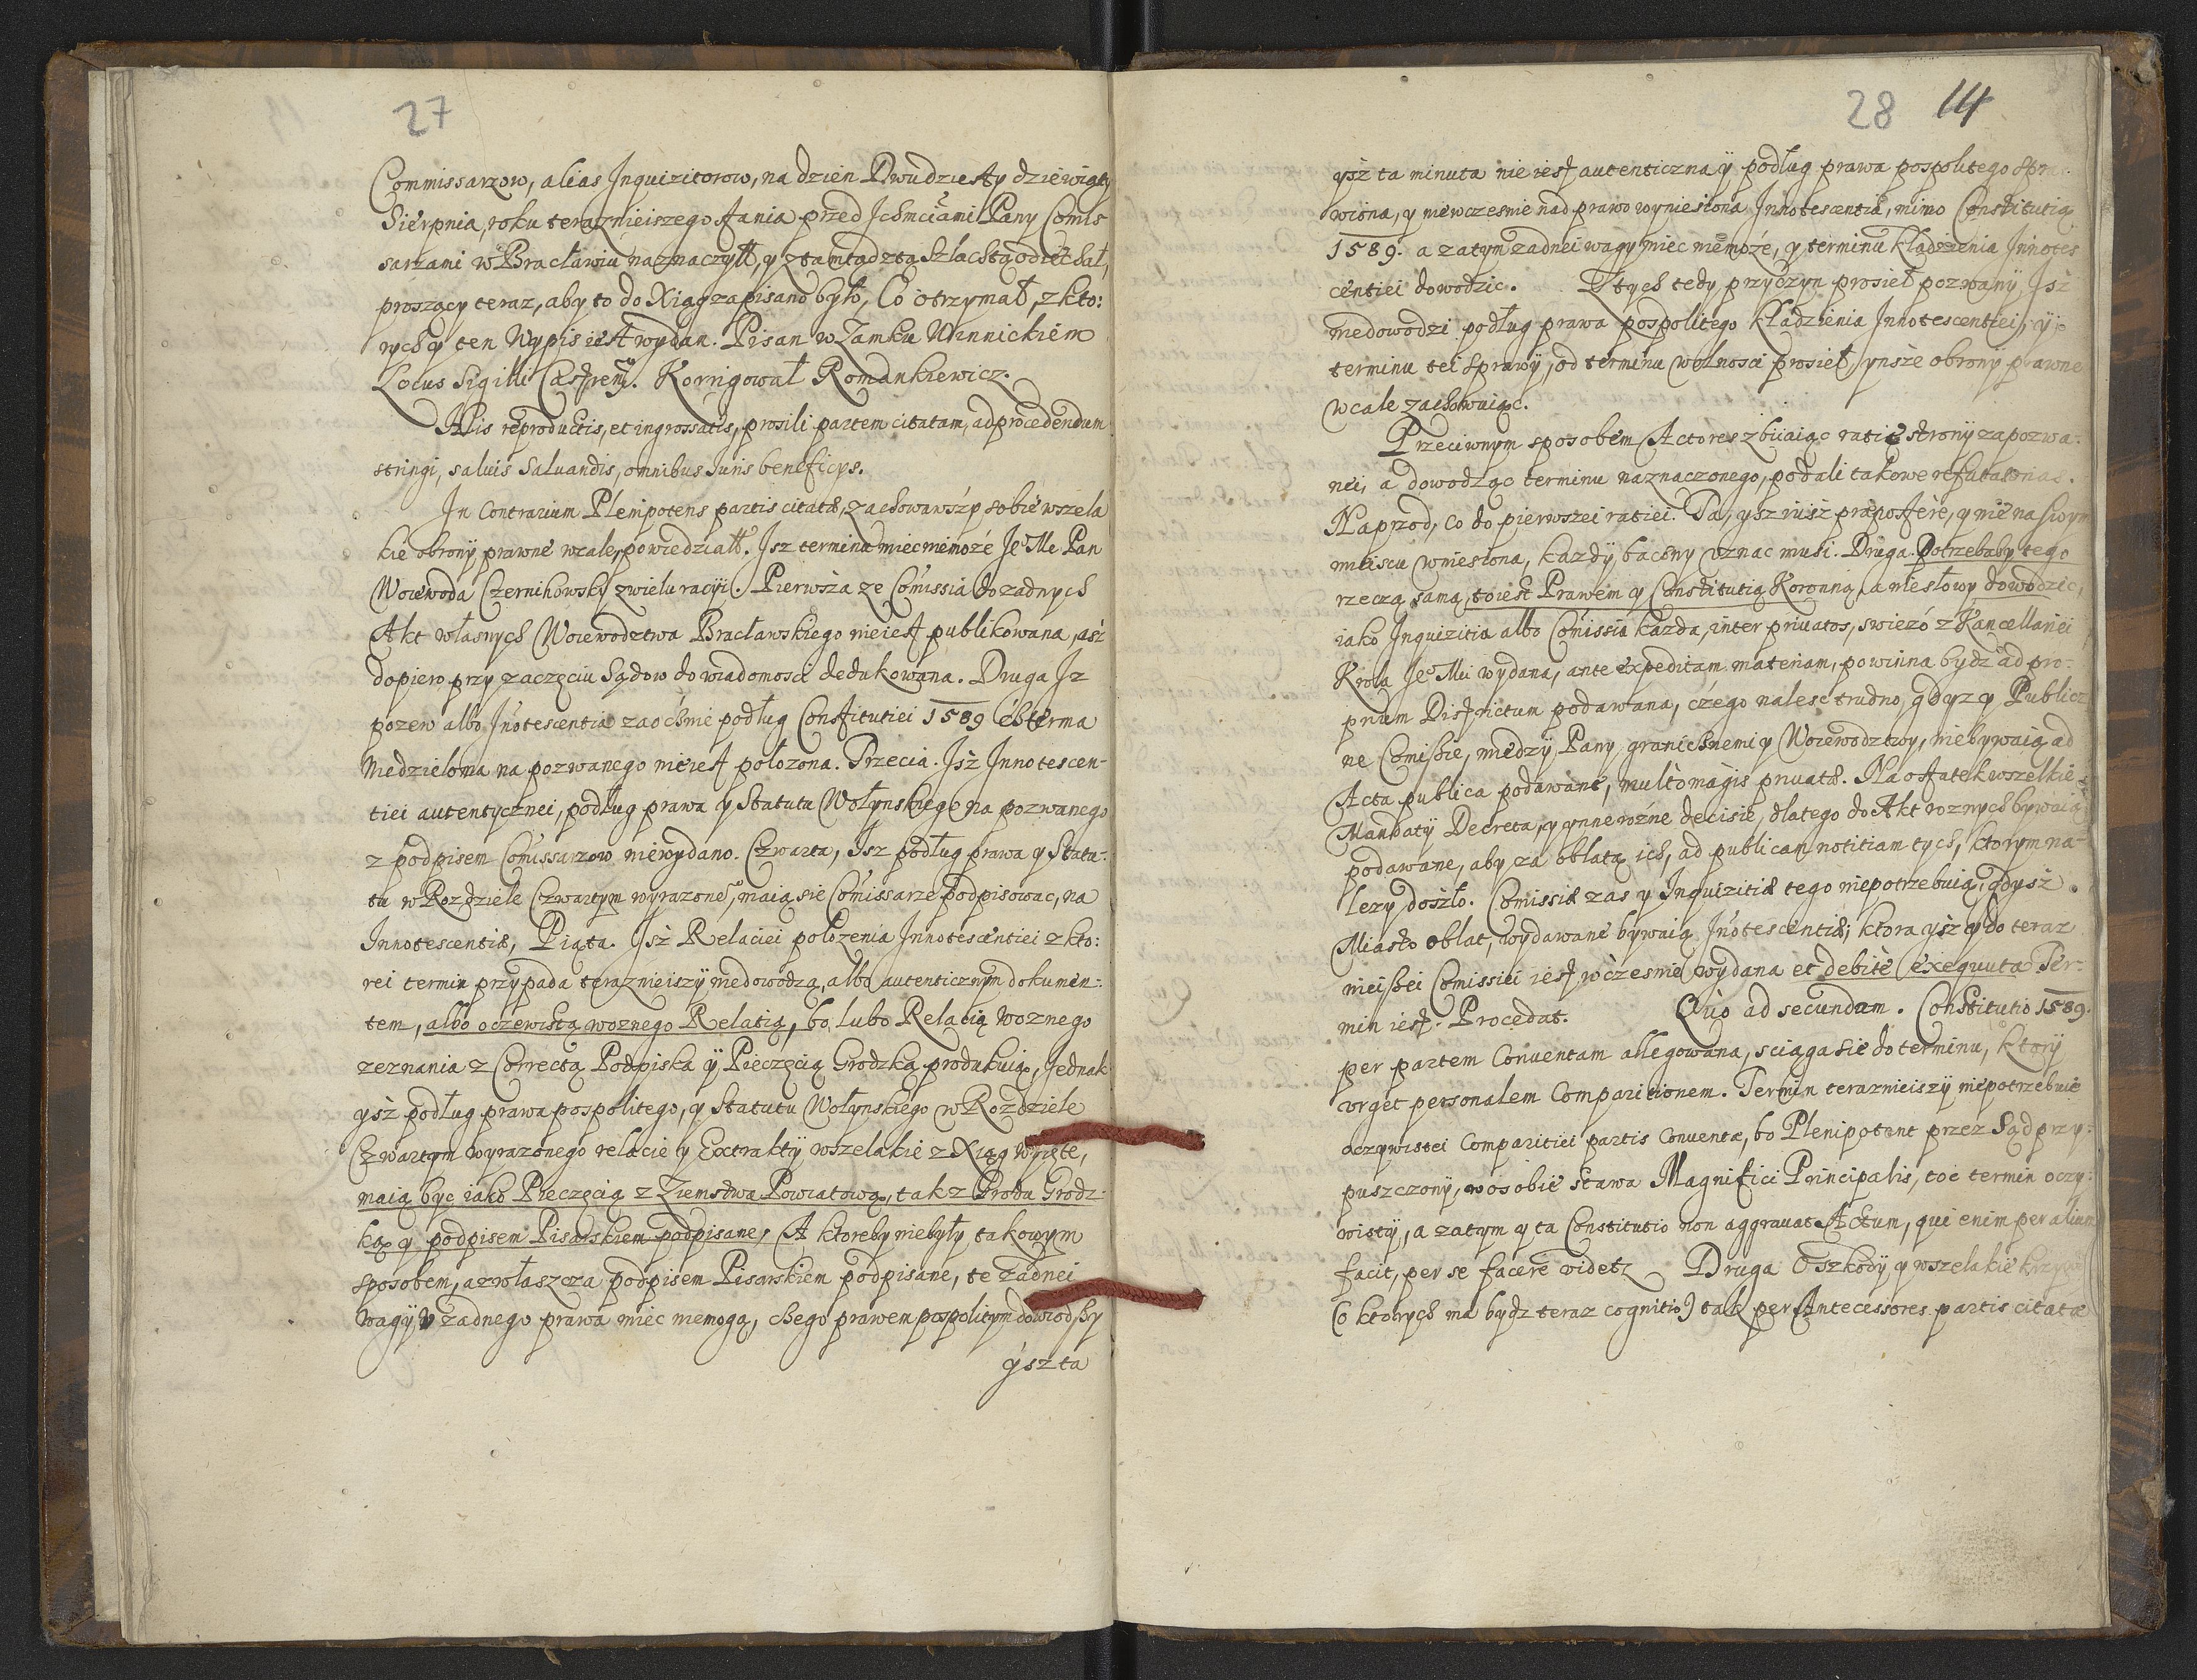 27
Commissarzow, alias Inquizitorow, na dzien Dwudziesty dziewiąty
Sierpnia, roku teraznieiszego stania przed Ichmciami Pany Comis
sarzami w Bracławiu naznaczył, y ztamtąd ztą Szlachtą odiechał,
proszący teraz, aby to do Xiąg zapisano było, Co otrzymał, z kto:
rych y ten Wypis iest wydan. Pisan w Zamku Winnickiem
Locus Sigilli Castren. Korrigował Romankiewicz.
His reproductis, et ingrossatis, prosili partem citatam, ad procedendum
stringi, saluis Saluandis, omnibus Iuris beneficys.
In Contrarium Plenipotens partis citatæ, zachowawszy sobie wszela
kie obrony prawne wcale, powiedział. Isz terminu miec niemoże Je Me Pan
Woiewoda Czernihowsky z wielu racyi. Pierwsza ze Comissia do zadnych
Akt własnych Woiewodztwa Bracławskiego nieiest publikowana, asz
dopiero przy zaczęciu Sądow do wiadomosci dedukowana. Druga Iz
pozew albo Inotescentia zaocznie podług Constitutiei 1589
Niedzieloma na pozwanego nieiest położona. Trzecia. Isz Innotescen-
tiei autentycznei, podług prawa y Statutu Wołynskiego na pozwanego
z podpisem Comissarzow niewydano. Czwarta, Isz podług prawa y Statu:
tu w Rozdziele Czwartym wyrazone, maią sie Comissarze podpisowac, na
Innotescentiæ, Piąta. Isz Relaciei położenia Innotescentiei z kto:
rei termin przypada teraznieiszy niedowodzą, albo autenticznym dokumen:
tem, albo oczewistą woznego Relatią, bo lubo Relatią Woznego
zeznania z Correctą Podpiska y Pieczęcią Grodzką produkuią, Jednak
ysz podług prawa pospolitego, y Statutu Wołynskiego w Rozdziele
Czwartym wyrazonego relacie y Extrakty wszelakie z Xiąg wyięte,
maią byc iako Pieczęcią z Ziemstwa Powiatową, tak z Grodu Grodz:
ką y podpisem Pisarskiem podpisane, A ktoreby niebyły takowym
sposobem, a zwłaszcza podpisem Pisarskiem podpisane, te żadnei
wagy y zadnego prawa miec niemogą, czego prawem pospolitym dowiodszy
ysz ta
28 14
ysz ta minuta nie iest autenticzna y podług prawa pospolitego spra
wiona, y niewczesnie nad prawo wyniesiona Innotescentia, mimo Constitutią
1589. a zatym zadnei wagy miec niemoże, y terminu kładzienia Innotes
centiei dowodzic. Z tych tedy przyczyn prosieł pozwany Isz
niedowodzi podług prawa pospolitego kładzienia Innotescentiei, y
terminu tei sprawy, od terminu wolnosci prosieł, ynsze obrony prawne
wcale zachowuiąc.
Przeciwnym sposobem Actores zbiiaiąc ratie strony zapozwa:
nei, a dowodząc terminu naznaczonego, podali takowe refutationes.
Naprzod, Co do pierwszei ratiei. Ta, ysz iusz præpostere, y nie na swym
mieiscu wniesiona, każdy baczny uznac musi. Druga. Potrzebaby tego
rzeczą samą, toiest Prawem y Constitutią Koronną, a niesłowy dowodzic,
iako Inquizitia albo Comissia każda, inter priuatos, swiezo z Kancellariei
Krola Je Mci wydana, ante expeditam materiam, powinna bydz ad pro:
prium Districtum podawana, czego nalesc trudno, gdyz y Publicz
ne Comissie, miedzy Pany granicznemi y Woiewodztwy, niebywaią ad
Acta publica podawane, multo magis priuatæ. Na ostatek wszelkie
Mandaty Decreta, y ynne rożne decisie, dlatego do Akt roznych bywaią
podawane, aby za oblatą ich, ad publicam notitiam tych, ktorym na-
lezy doszło. Comissiæ zas y Inquizitiæ tego niepotrzebuią, gdysz
Miasto oblat, wydawane bywaią Inotescentiæ; ktora ysz y do teraz
nieiszei Comissiei iest wczesnie wydana et debite exequuta Ter:
min iest. Procedat. Quo ad secundam. Constitutio 1589.
per partem Conuentam allegowana, sciąga sie do terminu, ktory
urget personalem Comparitionem. Termin teraznieiszy niepotrzebuie
oczywistei Comparitiei partis Conuentæ, bo Plenipotent przez Sąd przy:
puszczony, w osobie stawa Magnifici Principalis, toc termin oczy:
wisty, a zatym y ta Constitutio non aggrauat Actum, qui enim per alium
facit, per se facere videtz Druga O szkody, y wszelakie krzywdy
(o ktorych ma bydz teraz cognitio) tak per Antecessores partis citatæ